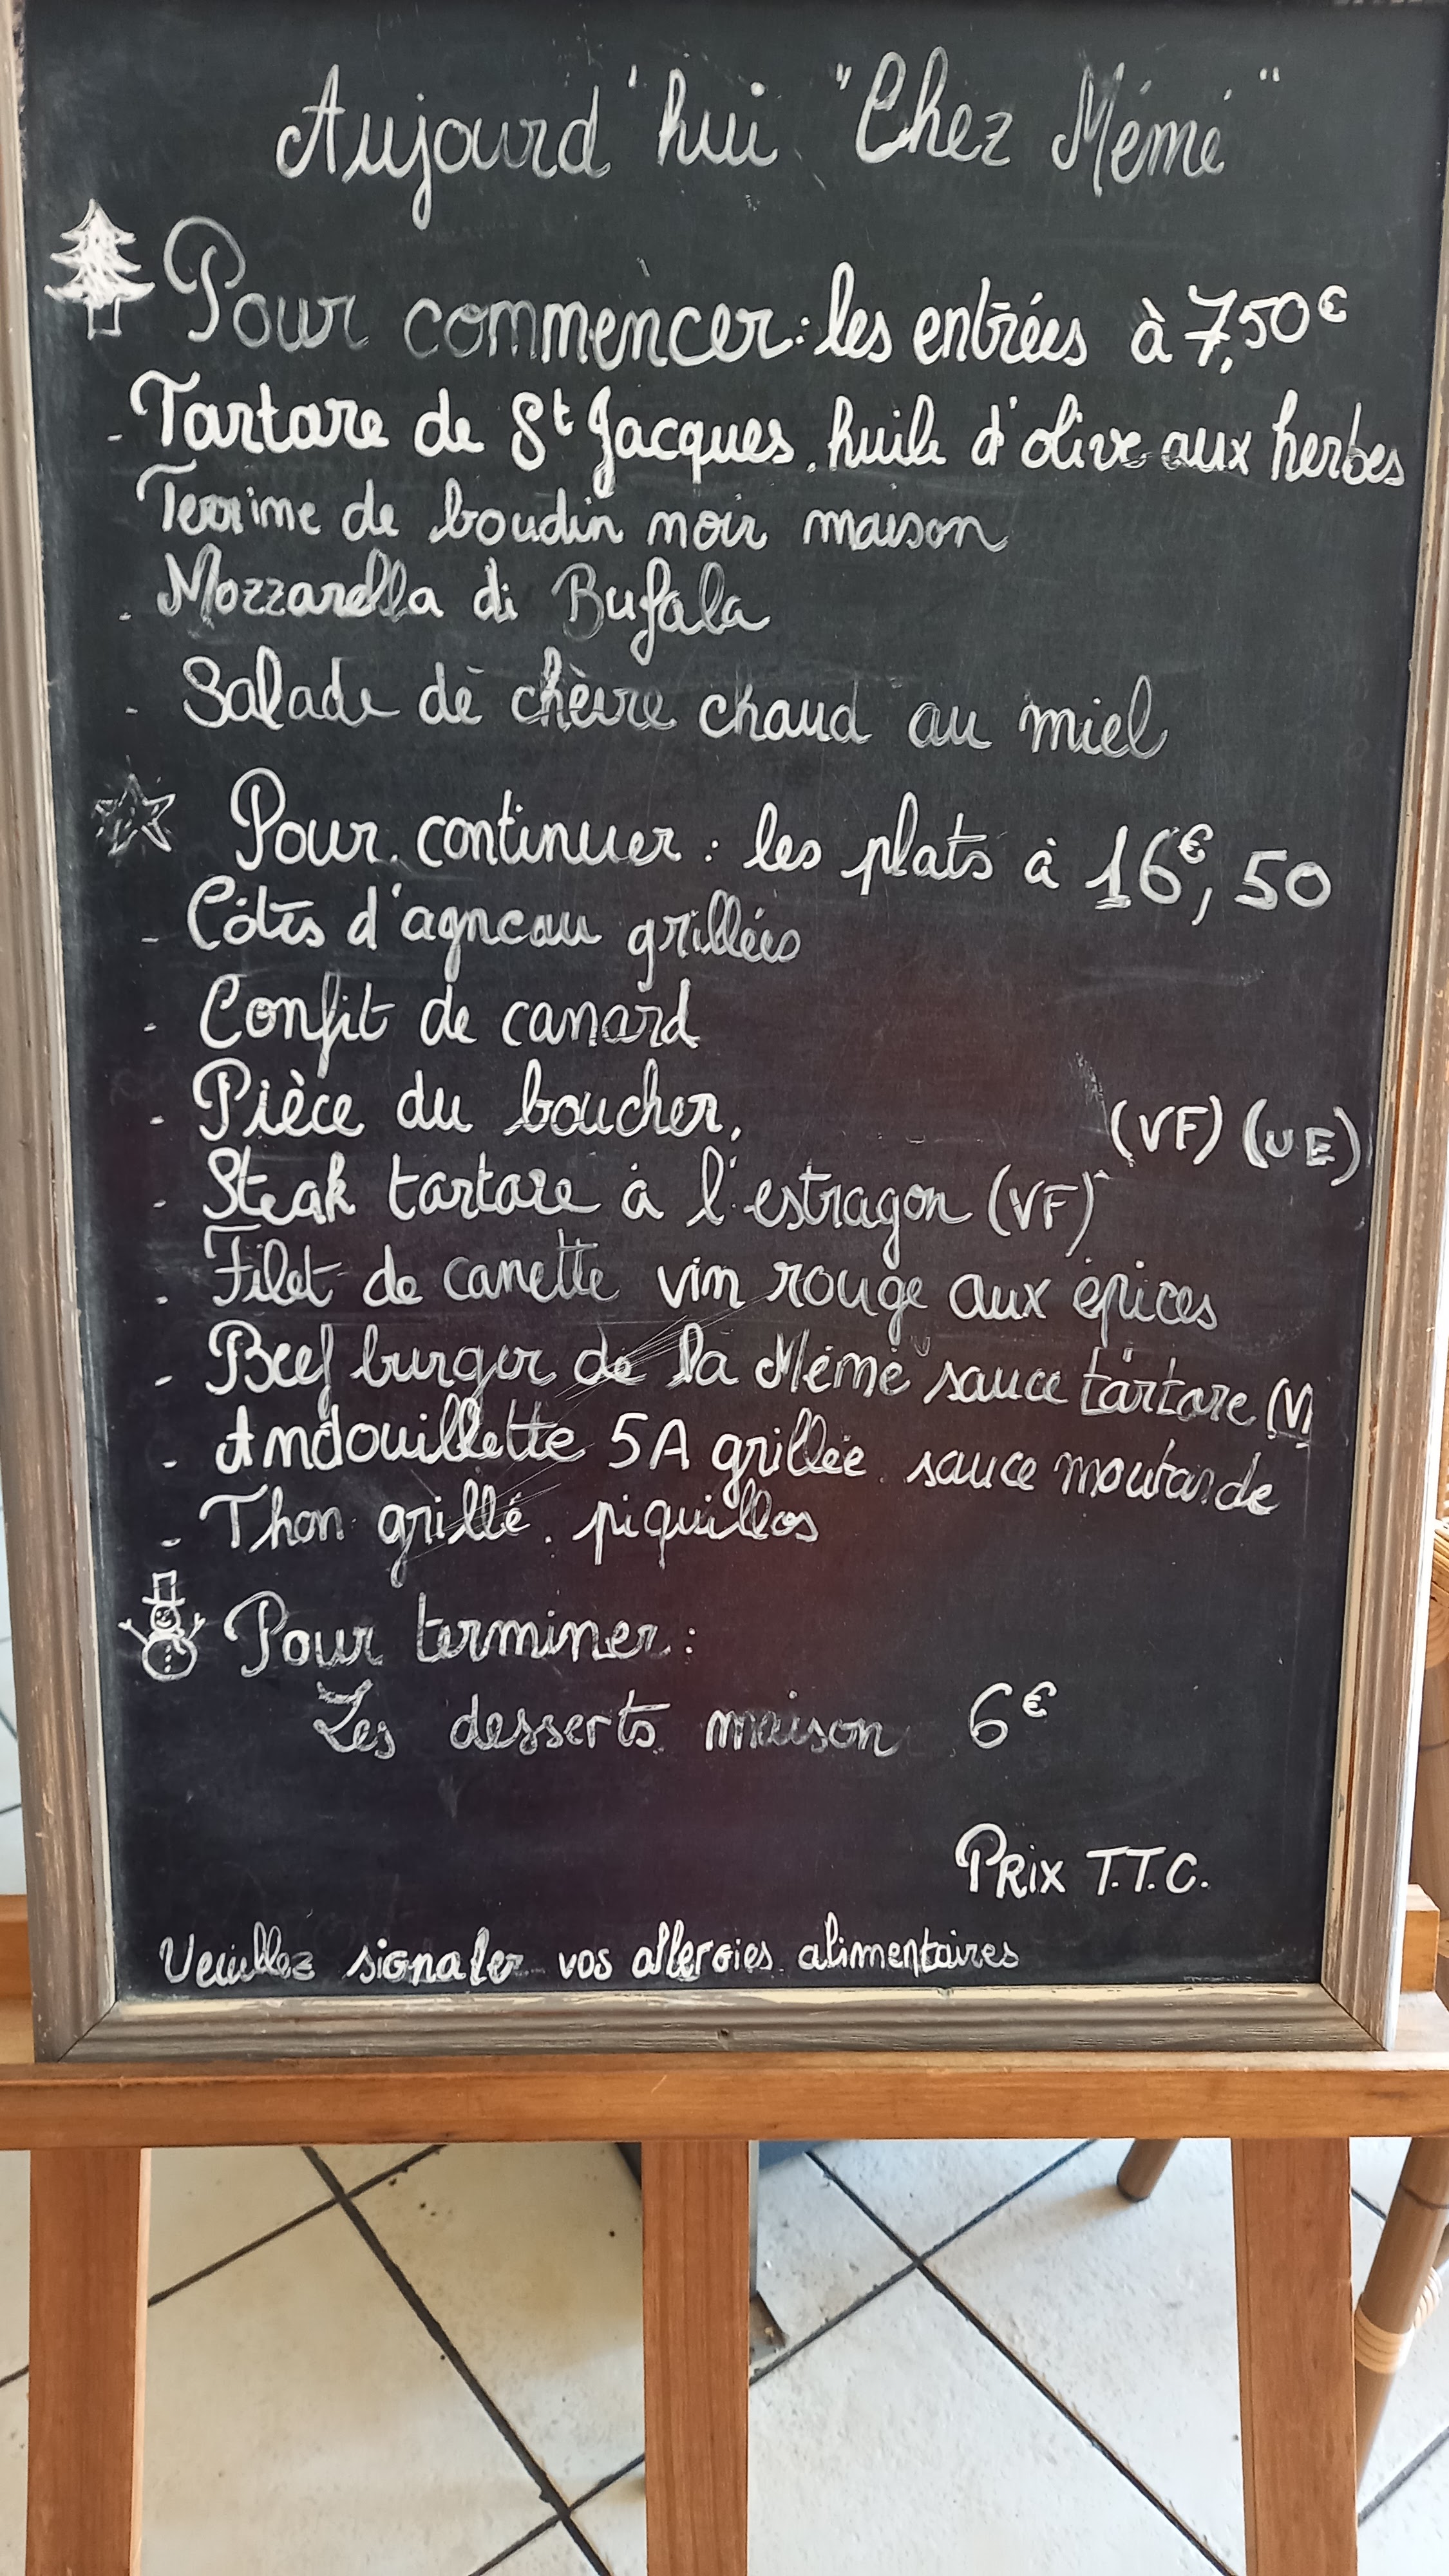 Aujourd'hui "Chez Mémé"
Pour commencer : les entrées à 7,50€
- Tartare de St Jacques, huile d'olive aux herbes
Terrine de boudin noir maison
- Mozzarella di Bufala
- Salade de chèvre chaud au miel
Pour continuer : les plats à 16€,50
- Côtes d'agneau grillées
- Confit de canard
- Pièce du boucher, (VF) (UE)
- Steak tartare à l'estragon (VF)
- Filet de canette vin rouge aux épices
- Beef burger de la Mémé sauce tartare (V)
- Andouillette 5A grillée sauce moutarde
- Thon grillé, piquillos
Pour terminer :
Les desserts maison 6€
PRix T.T.C.
Veuillez signaler vos allergies alimentaires